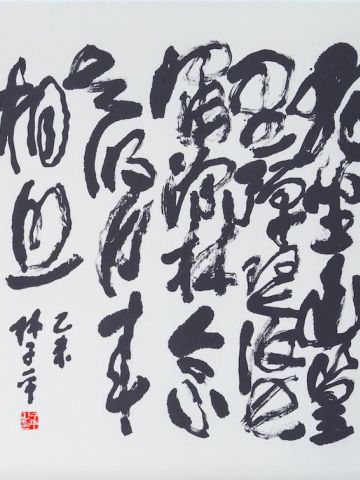 獨坐幽篁
里彈琴復長
嘯深林人不
知明月来
相照
乙未
林子平